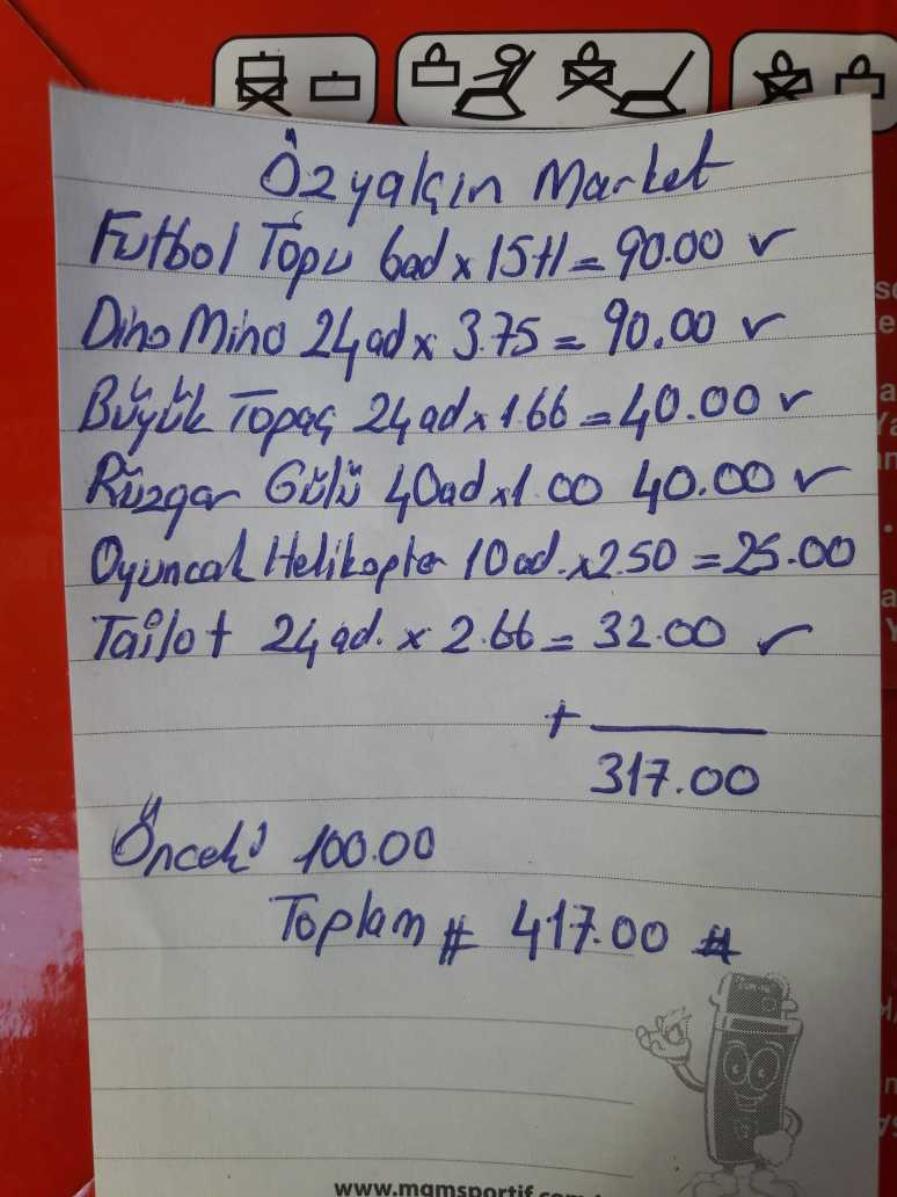 Özyalçın Market
Futbol Topu 6ad x 15tl = 90.00 ✓
Dino Mino 24ad x 3.75 = 90.00 ✓
Büyük Topaç 24ad x 1.66 = 40.00 ✓
Rüzgar Gülü 40ad x1.00 40.00 ✓
Oyuncak Helikopter 10ad. x2.50 = 25.00
24ad. x 2.66 = 32.00 ✓
+
317.00
Önceki 100.00
Toplam # 417.00 #
www.mamsportif.com